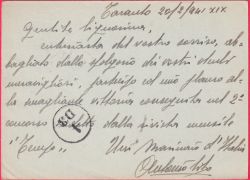 Taranto 20/2/941 XIX
Gentile Signorina,
entusiasta del vostro sorriso, ab-
bagliato dallo sfolgorio dei vostri denti
meravigliosi, partecipo col mio plauso al-
la smagliante vittoria conseguita nel 2º
concorso dalla rivista mensile
"Tempo"
Un Marinaio d'Italia